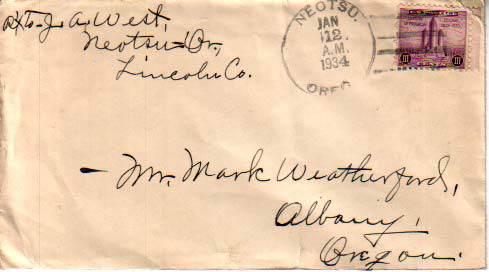 J. A. West,
Neotsu Or,
Lincoln Co.
NEOTSU.
JAN
12
A.M.
1934
OREG
III III
Mr. Mark Weatherford,
Albany,
Oregon.